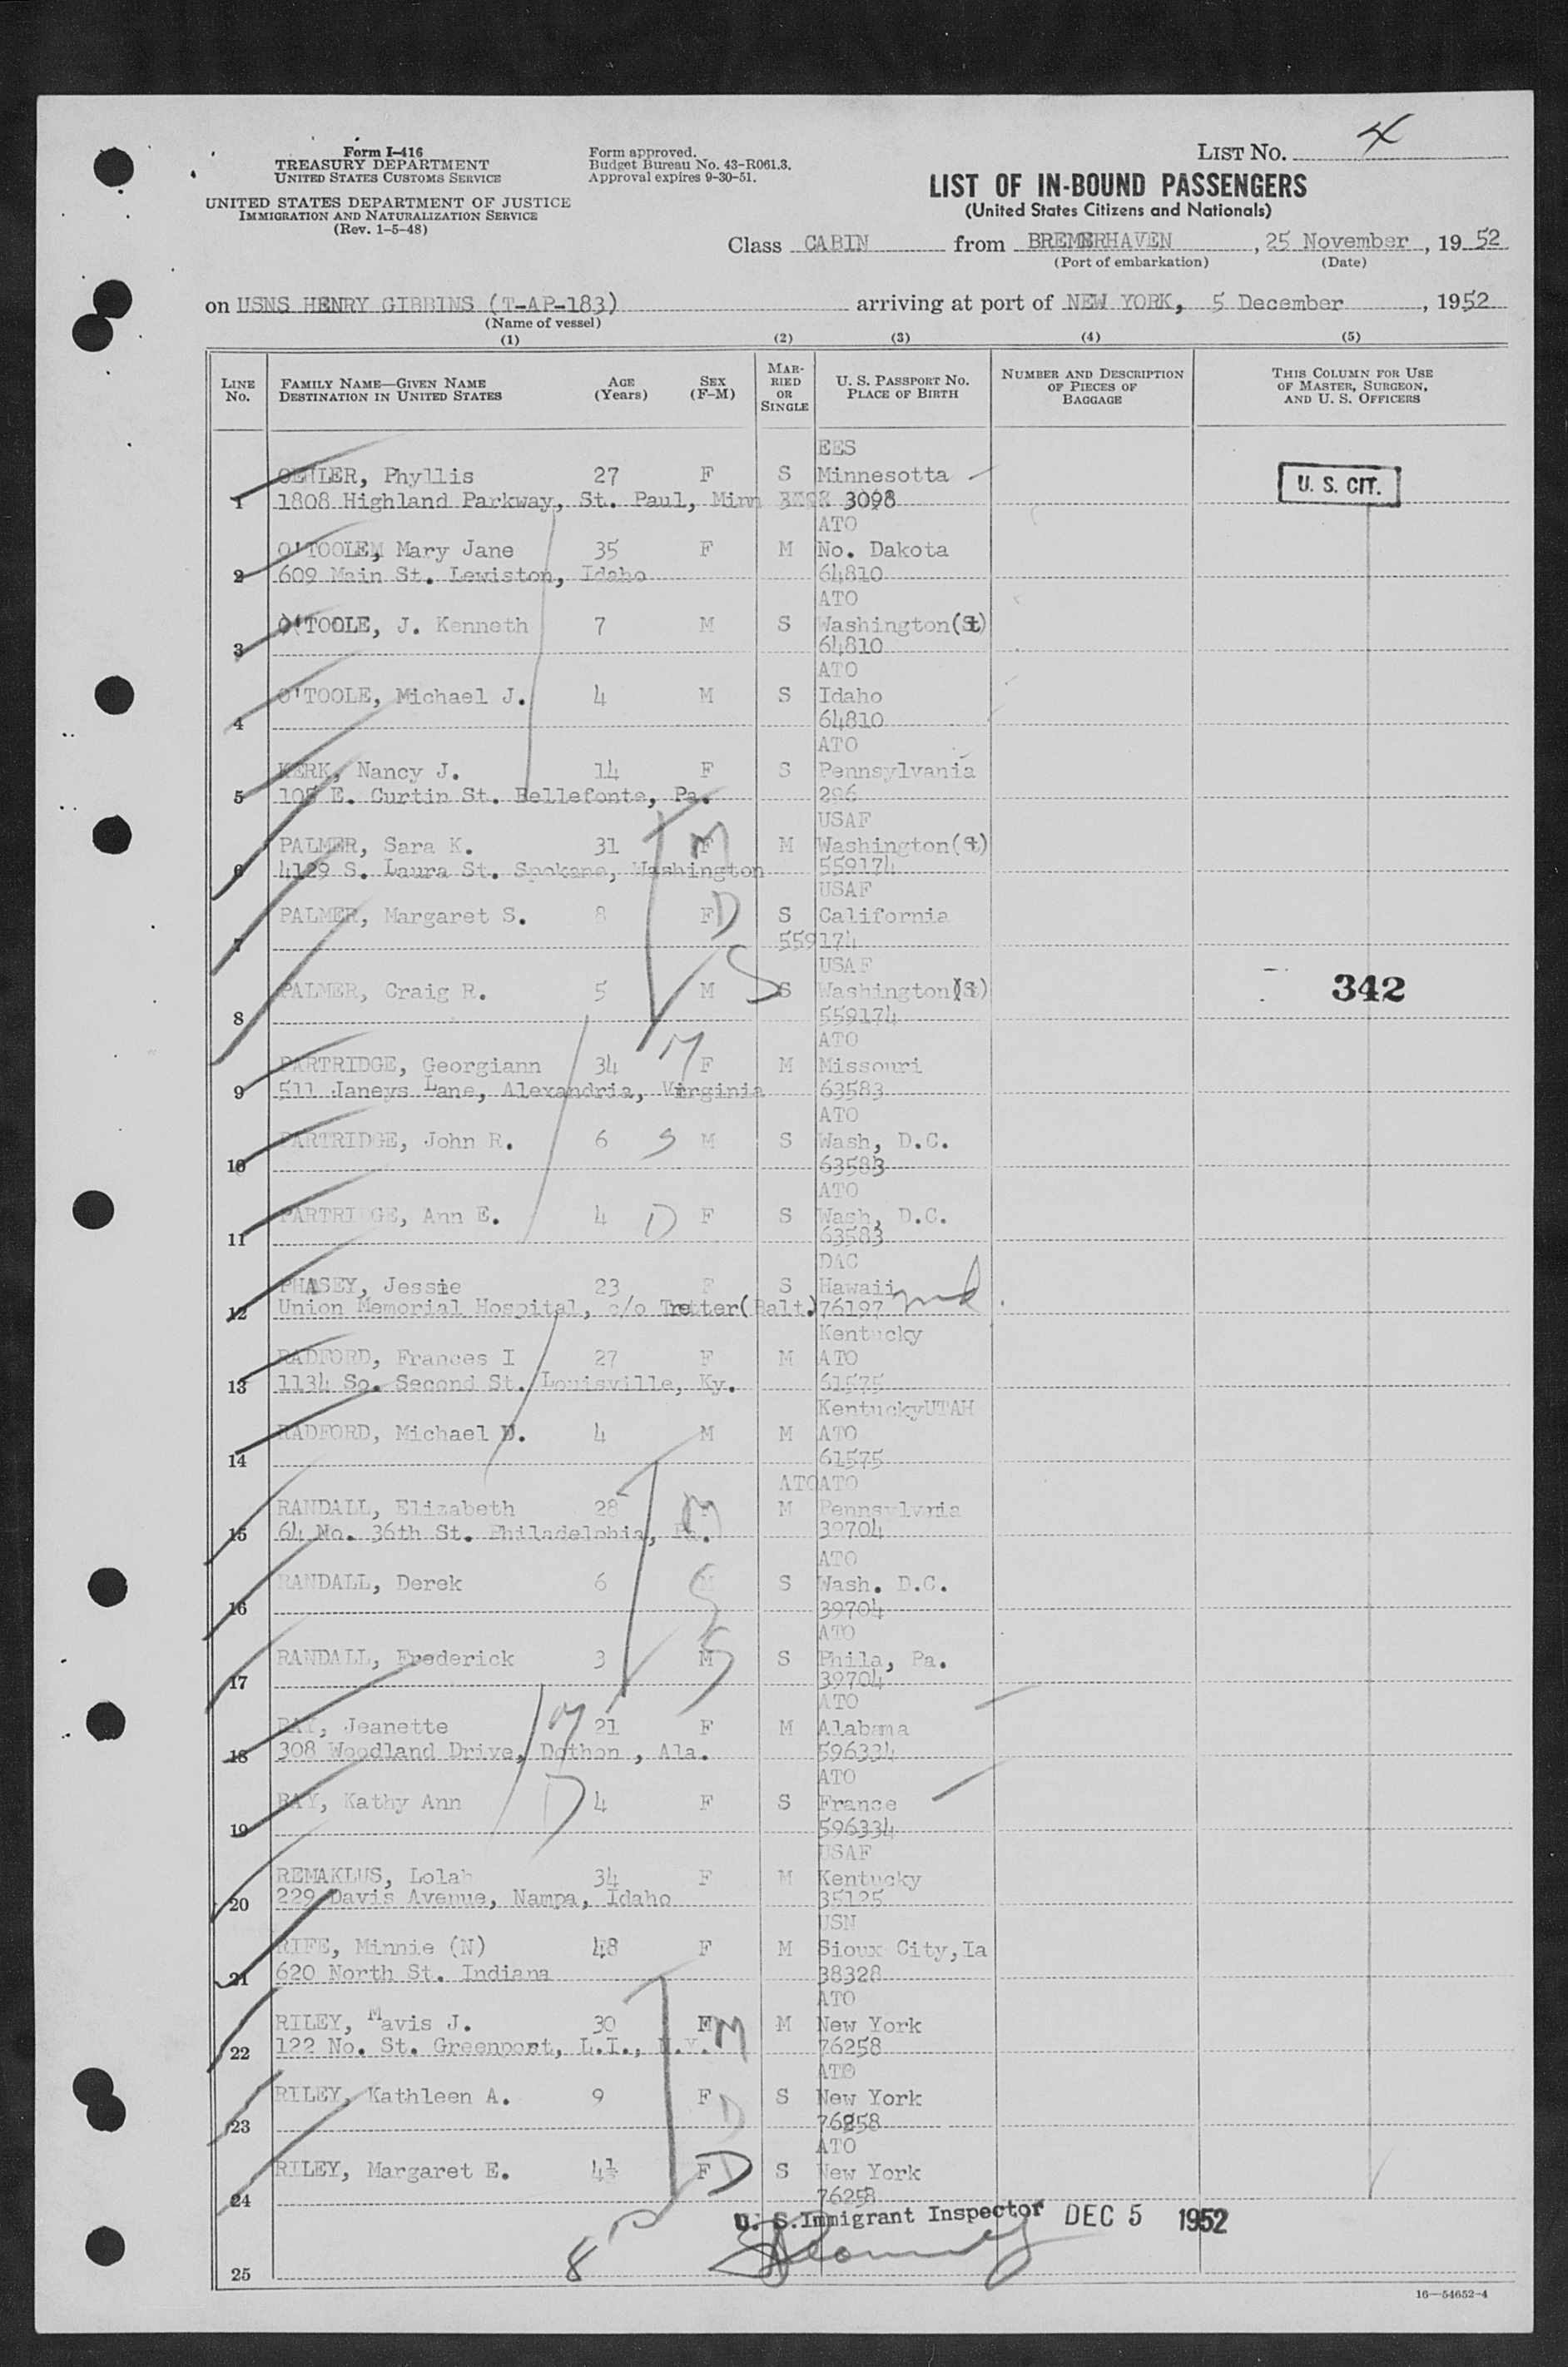 Form I-416
TREASURY DEPARTMENT
UNITED STATES CUSTOMS SERVICE
UNITED STATES DEPARTMENT OF JUSTICE
IMMIGRATION AND NATURALIZATION SERVICE
(Rev. 1-5-48)
Form approved.
Budget Bureau No. 43-R061.3.
Approval expires 9-30-51.
LIST NO. 4
LIST OF IN-BOUND PASSENGERS
(United States Citizens and Nationals)
Class CABIN from BREMERHAVEN, 25 November, 1952
(Port of embarkation) (Date)
on USNS HENRY GIBBINS (T-AP-183) arriving at port of NEW YORK, 5 December, 1952
(Name of vessel)
(1) (2) (3) (4) (5)
LINE NO. FAMILY NAME—GIVEN NAME DESTINATION IN UNITED STATES AGE (Years) SEX (F-M) MARRIED OR SINGLE U. S. PASSPORT NO. PLACE OF BIRTH NUMBER AND DESCRIPTION OF PIECES OF BAGGAGE THIS COLUMN FOR USE OF MASTER, SURGEON, AND U. S. OFFICERS
EES
OEHLER, Phyllis 27 F S Minnesotta U. S. CIT.
1 1808 Highland Parkway, St. Paul, Minn 3098
ATO
O'TOOLE, Mary Jane 35 F M No. Dakota
2 609 Main St. Lewiston, Idaho 64810
ATO
O'TOOLE, J. Kenneth 7 M S Washington(St)
3 64810
ATO
O'TOOLE, Michael J. 4 M S Idaho
4 64810
ATO
KERK, Nancy J. 14 F S Pennsylvania
5 105 E. Curtin St. Bellefonte, Pa. 296
USAF
PALMER, Sara K. 31 F M M Washington(St)
6 4129 S. Laura St. Spokane, Washington 559174
USAF
PALMER, Margaret S. 8 F D S California
7 559174
USAF
PALMER, Craig R. 5 M S S Washington(St) 342
8 559174
ATO
PARTRIDGE, Georgiann 34 M F M Missouri
9 511 Janeys Lane, Alexandria, Virginia 63583
ATO
PARTRIDGE, John R. 6 S M S Wash, D.C.
10 63583
ATO
PARTRI GE, Ann E. 4 D F S Wash, D.C.
11 63583
DAC
PHASEY, Jessie 23 F S Hawaii md.
12 Union Memorial Hospital, c/o Tretter(Balt.) 76197
Kentucky
RADFORD, Frances I 27 F M ATO
13 1134 So. Second St. Louisville, Ky. 61575
KentuckyUTAH
RADFORD, Michael D. 4 M M ATO
14 61575
ATOATO
RANDALL, Elizabeth 28 M M Pennsylvania
15 64 No. 36th St. Philadelphia, Pa. 39704
ATO
RANDALL, Derek 6 M S S Wash. D.C.
16 39704
ATO
RANDALL, Frederick 3 M S S Phila, Pa.
17 39704
ATO
RAY, Jeanette M 21 F M Alabama
18 308 Woodland Drive, Dothon , Ala. 596334
ATO
RAY, Kathy Ann D 4 F S France
19 596334
USAF
REMAKLUS, Lolah 34 F M Kentucky
20 229 Davis Avenue, Nampa, Idaho 35125
USN
RIFE, Minnie (N) 48 F M Sioux City,Ia
21 620 North St. Indiana 38328
ATO
RILEY, Mavis J. 30 F M M New York
22 122 No. St. Greenport, L.I., N.Y. 76258
ATO
RILEY, Kathleen A. 9 F D S New York
23 76258
ATO
RILEY, Margaret E. 4½ F D S New York
24 76258
U. S. Immigrant Inspector DEC 5 1952
8
25
16—54652-4